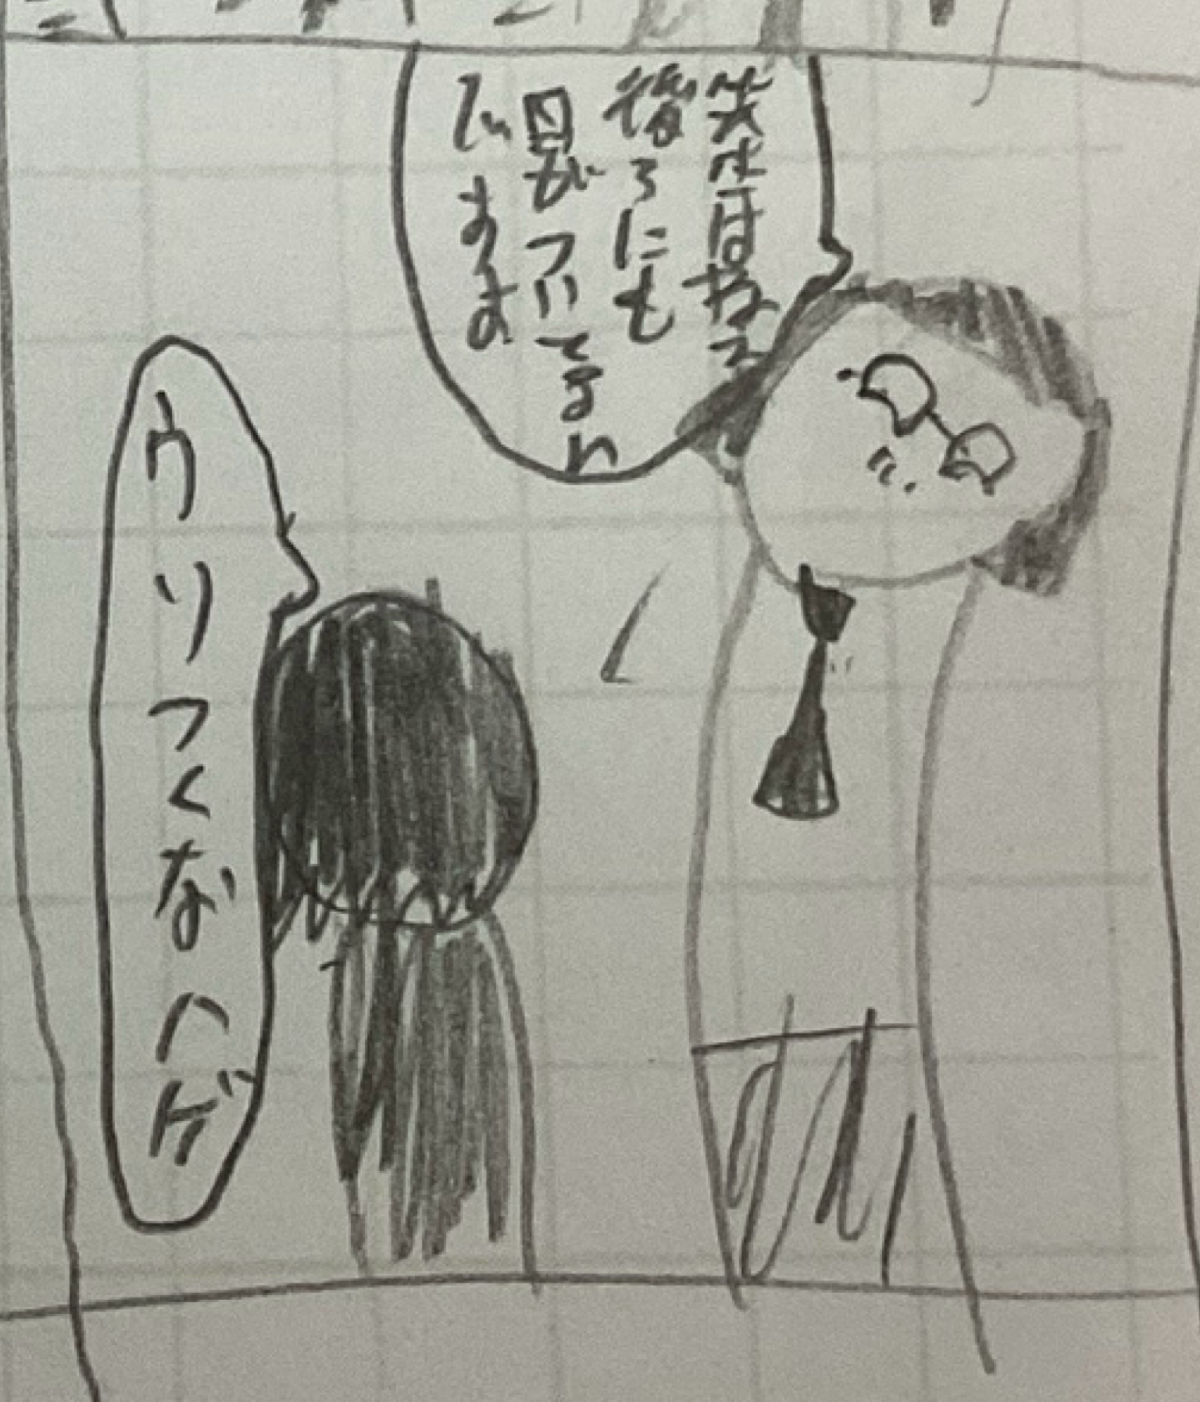 先生はねえ
後ろにも
目がついてるん
ですよ
ウソつくなハゲ